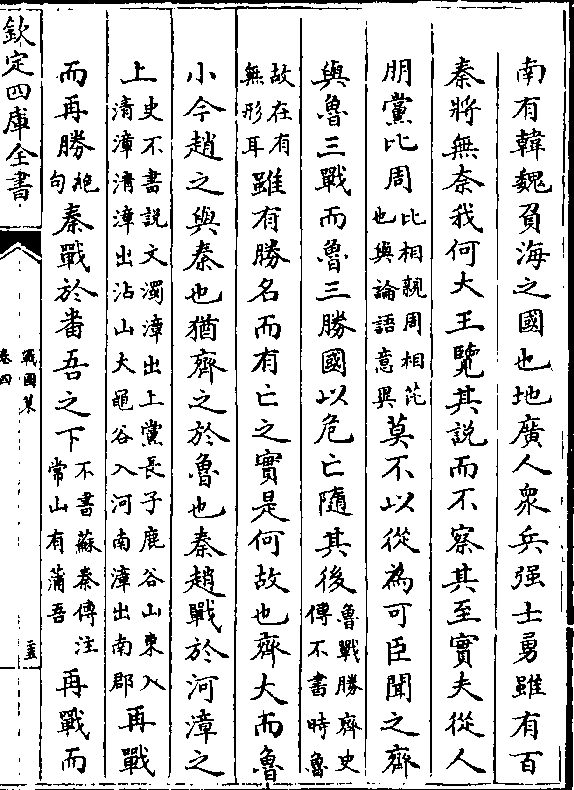 南有韓魏負海之國也地廣人衆兵强士勇雖有百
秦將無奈我何大王覽其說而不察其至實夫從人
朋黨比周比相親周相芘也與論語意異莫不以從為可臣聞之齊
與魯三戰而魯三勝國以危亡隨其後魯戰勝齊史傳不書時魯
故在有無形耳雖有勝名而有亡之實是何故也齊大而魯
小今趙之與秦也猶齊之於魯也秦趙戰於河漳之
上史不書說文濁漳出上黨長子鹿谷山東入清漳清漳出沾山大黽谷入河南漳出南郡再戰
而再勝絶句秦戰於畨吾之下不書蘇秦傳注常山有蒲吾再戰而
欽定四庫全書
戰國策
卷四